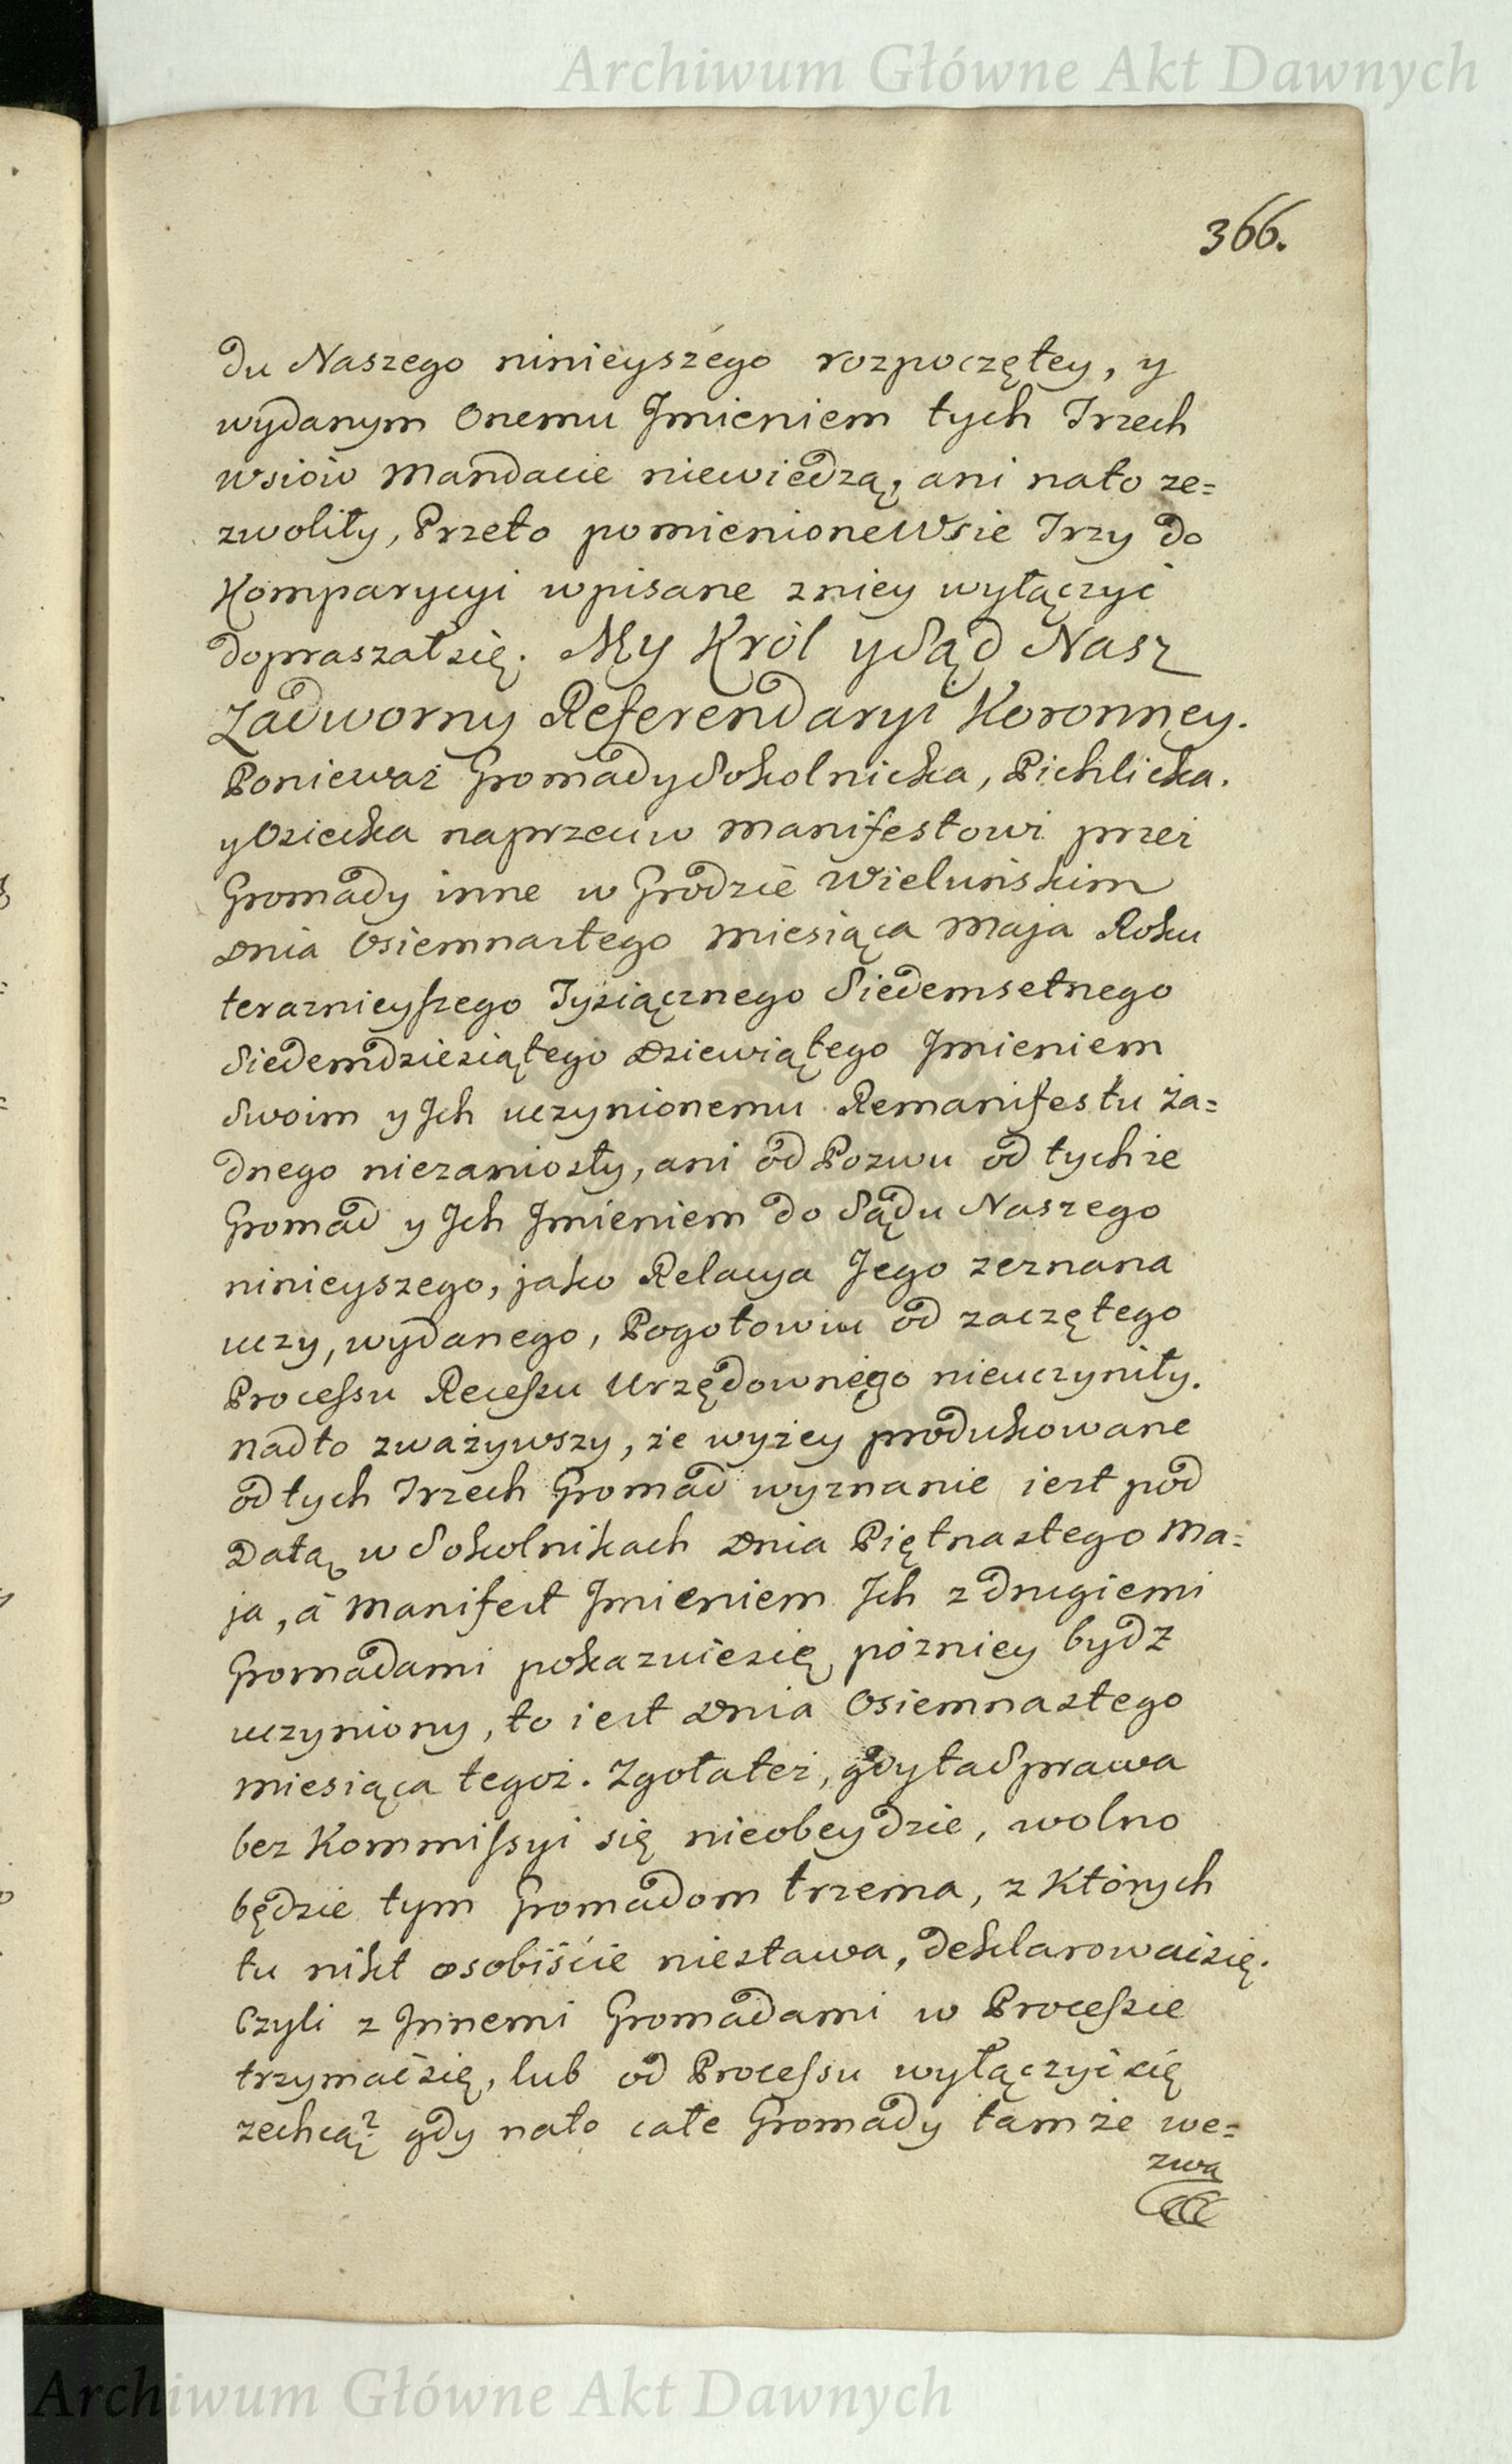 Archiwum Główne Akt Dawnych
366.
du Naszego ninieyszego rozpoczętey, y
wydanym Onemu Imieniem tych Trzech
wsiow Mandacie niewiedzą, ani nato ze=
zwoliły, Przeto pomienione Wsie Trzy do
Komparycyi wpisane zniey wyłączyć
dopraszał się. My Król y Sąd Nasz
Zadworny Referendaryi Koronney.
Ponieważ Gromady Sokolnicka, Pichlicka.
y Osiecka naprzeciw Manifestowi przez
Gromady inne w Grodzie Wieluńskim
Dnia Osiemnastego Miesiąca Maja Roku
teraznieyszego Tysiącznego Siedemsetnego
Siedemdziesiątego Dziewiątego Imieniem
Swoim y Ich uczynionemu Remanifestu ża=
dnego niezaniosły, ani od Pozwu od tychże
Gromad y Ich Imieniem do Sądu Naszego
ninieyszego, jako Relacya Jego zeznana
uczy, wydanego, Pogotowiu od zaczętego
Processu Recessu Urzędownego nieuczyniły.
nadto zważywszy, że wyżey produkowane
od tych Trzech Gromad wyznanie iest pod
Datą w Sokolnikach Dnia Piętnastego Ma=
ja, á Manifest Imieniem Ich z drugiemi
Gromadami pokazuiesię pózniey bydź
uczyniony, to iest Dnia Osiemnastego
miesiąca tegoż. Zgoła też, gdy ta Sprawa
bez Kommissyi się nieobeydzie, wolno
będzie tym Gromadom trzema, z Których
tu nikt osobiście niestawa, deklarowaćsię.
Czyli z Innemi Gromadami w Processie
trzymaćsię, lub od Processu wyłączyć się
zechcą? gdy nato całe Gromady tamże we=
zwą
Archiwum Główne Akt Dawnych